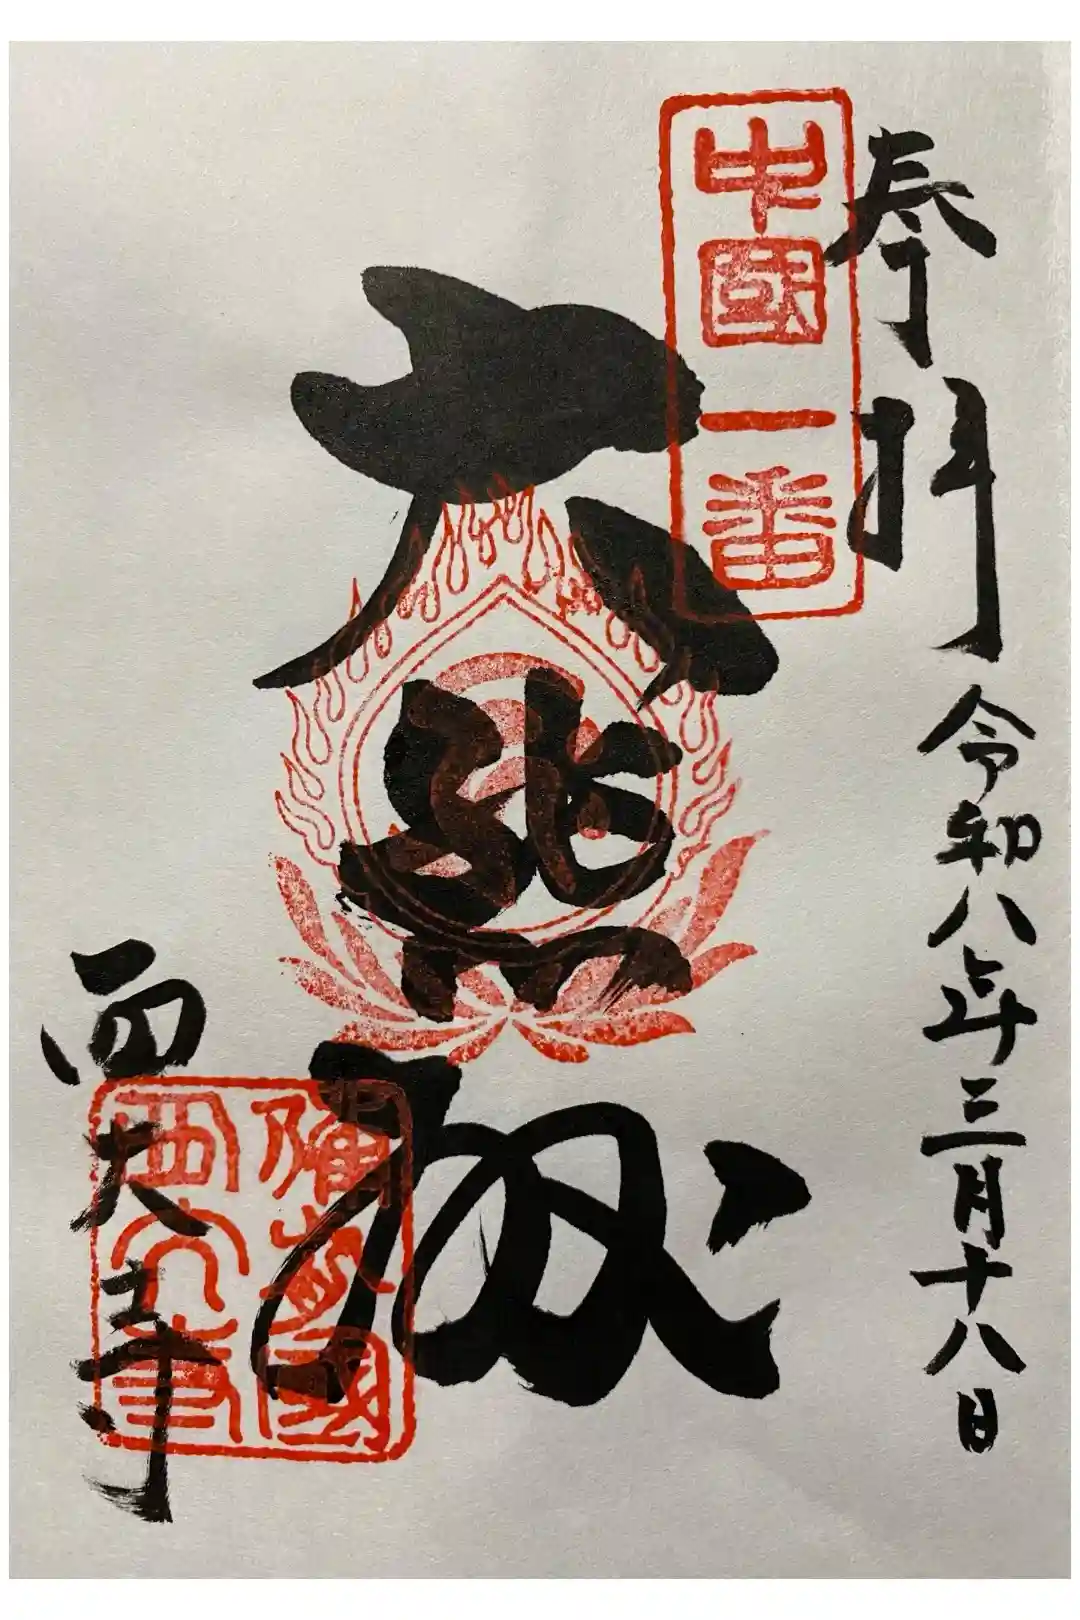 奉拝
令和八年三月十八日
中國一番
大悲殿
西大寺
備前國
西大寺